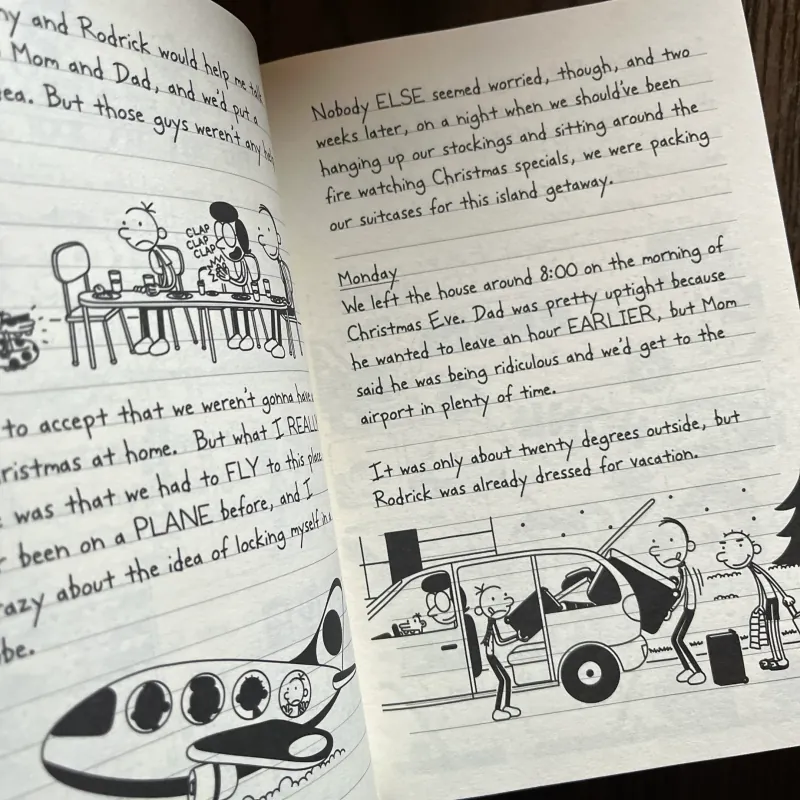 and Rodrick would help me talk
Mom and Dad, and we'd put a
But those guys weren't any
CLAP
CLAP
CLAP
to accept that we weren't gonna have
at home. But what I REALLY
was that we had to FLY to this place.
been on a PLANE before, and I
about the idea of locking myself in a
Nobody ELSE seemed worried, though, and two
weeks later, on a night when we should've been
hanging up our stockings and sitting around the
fire watching Christmas specials, we were packing
our suitcases for this island getaway.
Monday
We left the house around 8:00 on the morning of
Christmas Eve. Dad was pretty uptight because
he wanted to leave an hour EARLIER, but Mom
said he was being ridiculous and we'd get to the
airport in plenty of time.
It was only about twenty degrees outside, but
Rodrick was already dressed for vacation.